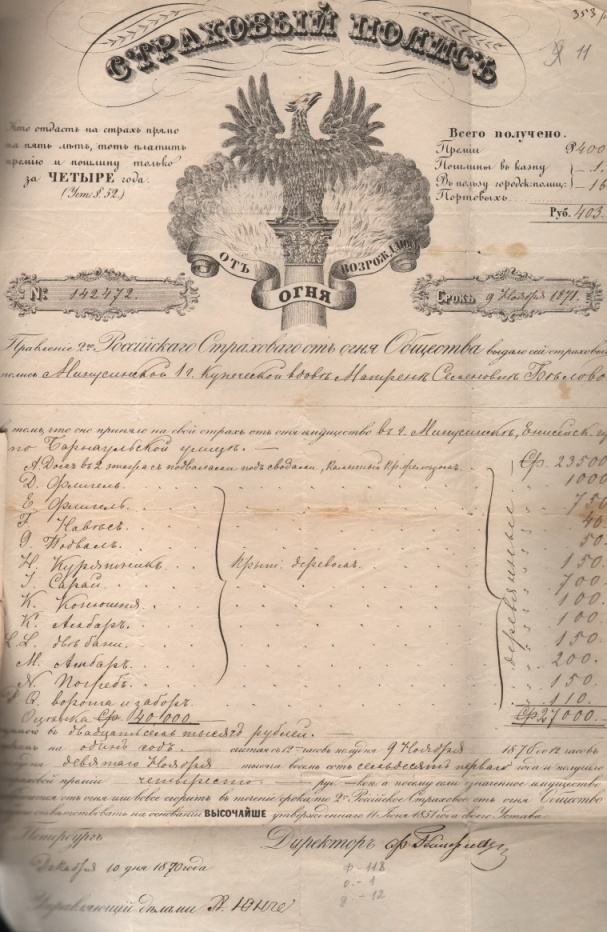 353/
11
СТРАХОВЫЙ ПОЛИСЪ
Кто отдастъ на страхъ прямо
на пять лѣтъ, тотъ платитъ
премію и пошлину только
за ЧЕТЫРЕ года.
(Уст: §. 52.)
Всего получено.
Преміи 400
Пошлины въ казну 1.
Въ пользу городск: полиц:
Портовыхъ
Руб. 403.
ОТЪ ОГНЯ ВОЗРОЖДАЮСЬ
№: 142472.
Срокъ 9 Ноября 1871.
Правленіе 2го Россійскаго Страховаго отъ огня Общества выдало сей страховый
полисъ Минусинской 1 г. Купеческой вдовѣ Матренѣ Семеновнѣ Бѣлово
въ томъ, что оно приняло на свой страхъ отъ огня имущество въ г. Минусинскѣ, Енисейск.
по Барнаульской улицѣ. —
А. Домъ въ 2 этажа съ подвалами подъ сводами, Ср. 23500
D. Флигель. 1000
E. Флигель. 750
F. Навѣсъ. 40
Подвалъ. 50.
H. Курятникъ. Крыт: деревомъ. 150.
I. Сарай. 700
K. Конюшня. 100
К. Амбаръ. 100
L. L. двѣ бани. 150
M. Амбаръ. 200.
N. Погребъ. 150
ворота и заборъ. 110.
деревянные
Оцѣнка Ср. 40.000 Ср 27000.
суммой въ двадцать семь тысячъ рублей.
срокомъ на одинъ годъ. считая съ 12 часовъ полудня 9 Ноября 1870 до 12 часовъ
полудня девятаго Ноября тысяча восемь сотъ семьдесятъ перваго года и получило
страховой преміи четыреста руб — коп. а посему если означенное имущество
отъ огня или вовсе сгоритъ въ теченіе срока, то 2е Россійское Страховое отъ огня Общество
на основаніи ВЫСОЧАЙШЕ утвержденнаго 11 Іюня 1851 года своего Устава.
Петербургъ Директоръ
Декабря 10 дня 1870 года
Управляющій дѣлами